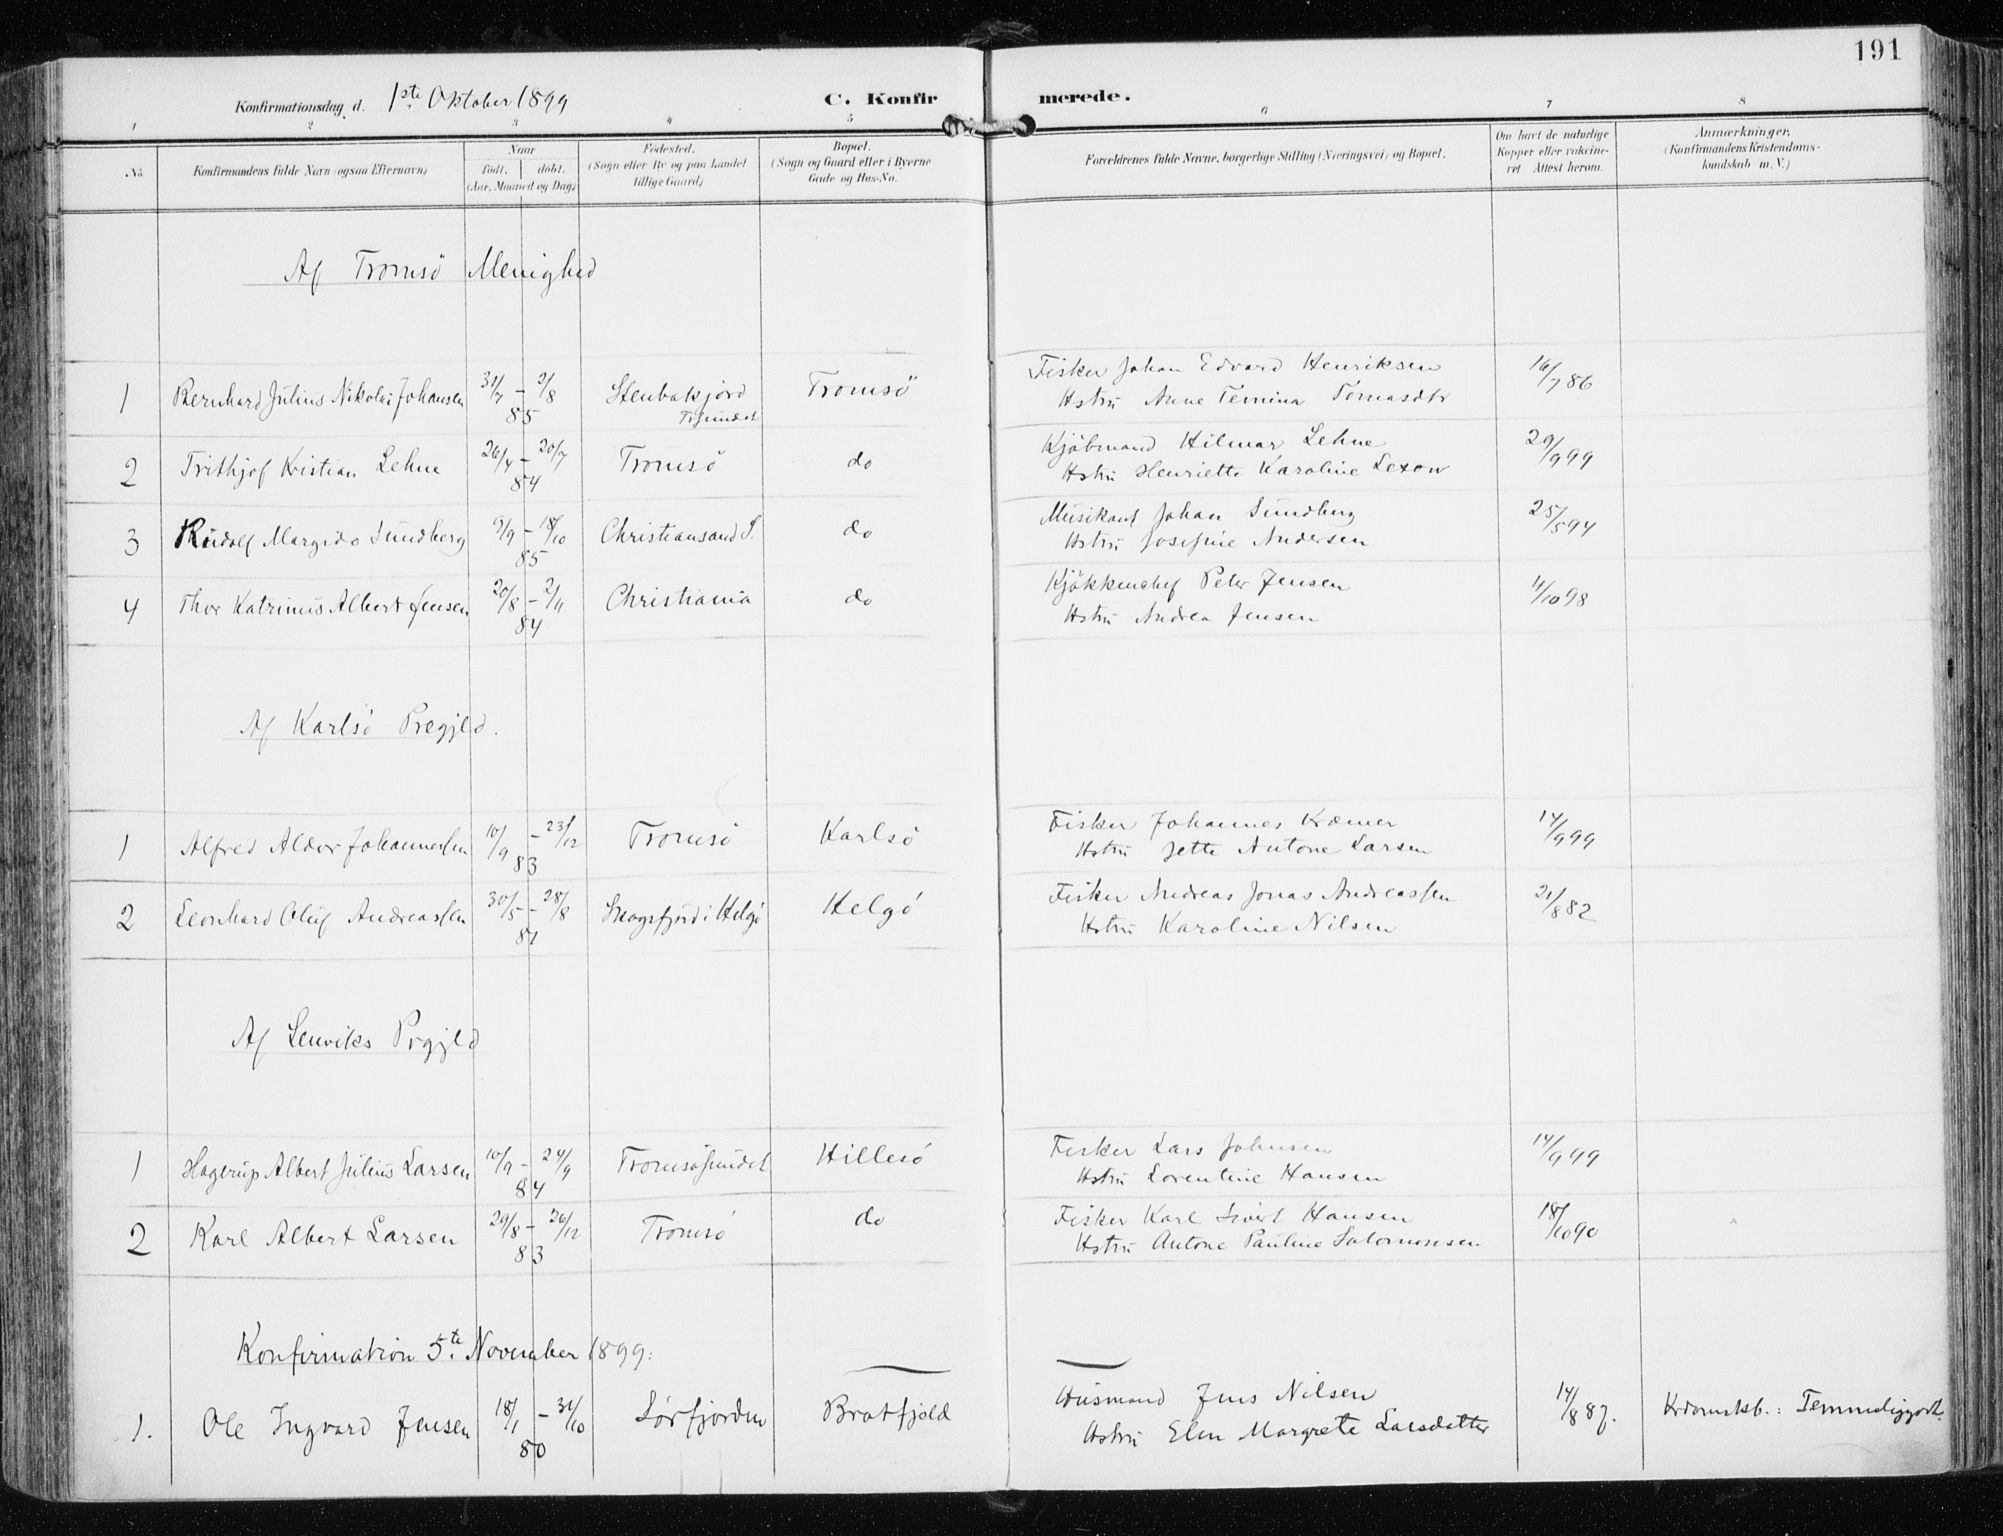 191
Konfirmationsdag d. 1ste Oktober 1899
C. Konfirmerede.
1 2 3 4 5 6 7 8
No.
Konfirmandens fulde Navn (ogsaa Efternavn)
Naar
født. døbt.
(Aar, Maaned og Dag)
Fødested.
(Sogn eller By og paa Landet
tillige Gaard)
Bopæl.
(Sogn og Gaard eller i Byerne
Gade og Hus-No.
Forældrenes fulde Navne, borgerlige Stilling (Næringsvei) og Bopæl.
Om havt de naturlige
Kopper eller vakcine-
ret Attest herom.
Anmærkninger.
(Konfirmandens Kristendoms-
kundskab m. V.)
Af Tromsö Menighed
1 Bernhard Julius Nikolai Johansen 31/7 – 2/8 85 Stenbakjord Trsundet Tromsö Fisker Johan Edvard Henriksen 16/7 86
Hstru Anne Temina Tomasdtr
2 Frithjof Kristian Lehne 26/4 – 20/7 84 Tromsö do Kjöbmand Hilmar Lehne 29/9 99
Hstru Henriette Karoline Lexow
3 Rudolf Margido Sundberg 9/9 – 18/10 85 Christiansand S. do Musikant Johan Sundberg 25/5 94
Hstru Josefine Andersen
4 Thor Katrinus Albert Jensen 20/8 – 2/11 84 Christiania do Kjökkenchef Peter Jensen 11/10 98
Hstru Andrea Jensen
Af Karlsö Pregjld.
1 Alfred Aldor Johannessen 10/9 – 23/12 83 Tromsö Karlsö Fisker Johannes Kræmer 14/9 99
Hstru Jette Antone Larsen
2 Leonhard Oluf Andreassen 30/5 – 28/8 81 Skogsfjord i Helgö Helgö Fisker Andreas Jonas Andreassen 21/8 82
Hstru Karoline Nilsen
Af Lenviks Prgjld
1 Hagerup Albert Julius Larsen 10/9 – 24/9 84 Tromsösundet Hillesö Fisker Lars Johnsen 14/9 99
Hstru Lorentine Hansen
2 Karl Albert Larsen 29/8 – 26/12 83 Tromsö do Fisker Karl Sivert Hansen 18/10 90
Hstru Antone Pauline Salomonsen
Konfirmation 5te November 1899:
1. Ole Ingvard Jensen 18/1 – 31/10 80 Sörfjorden Bratfjeld Husmand Jens Nilsen 14/8 87. Krdomskb.: Temmeliggodt.
Hstru Elen Margrete Larsdatter